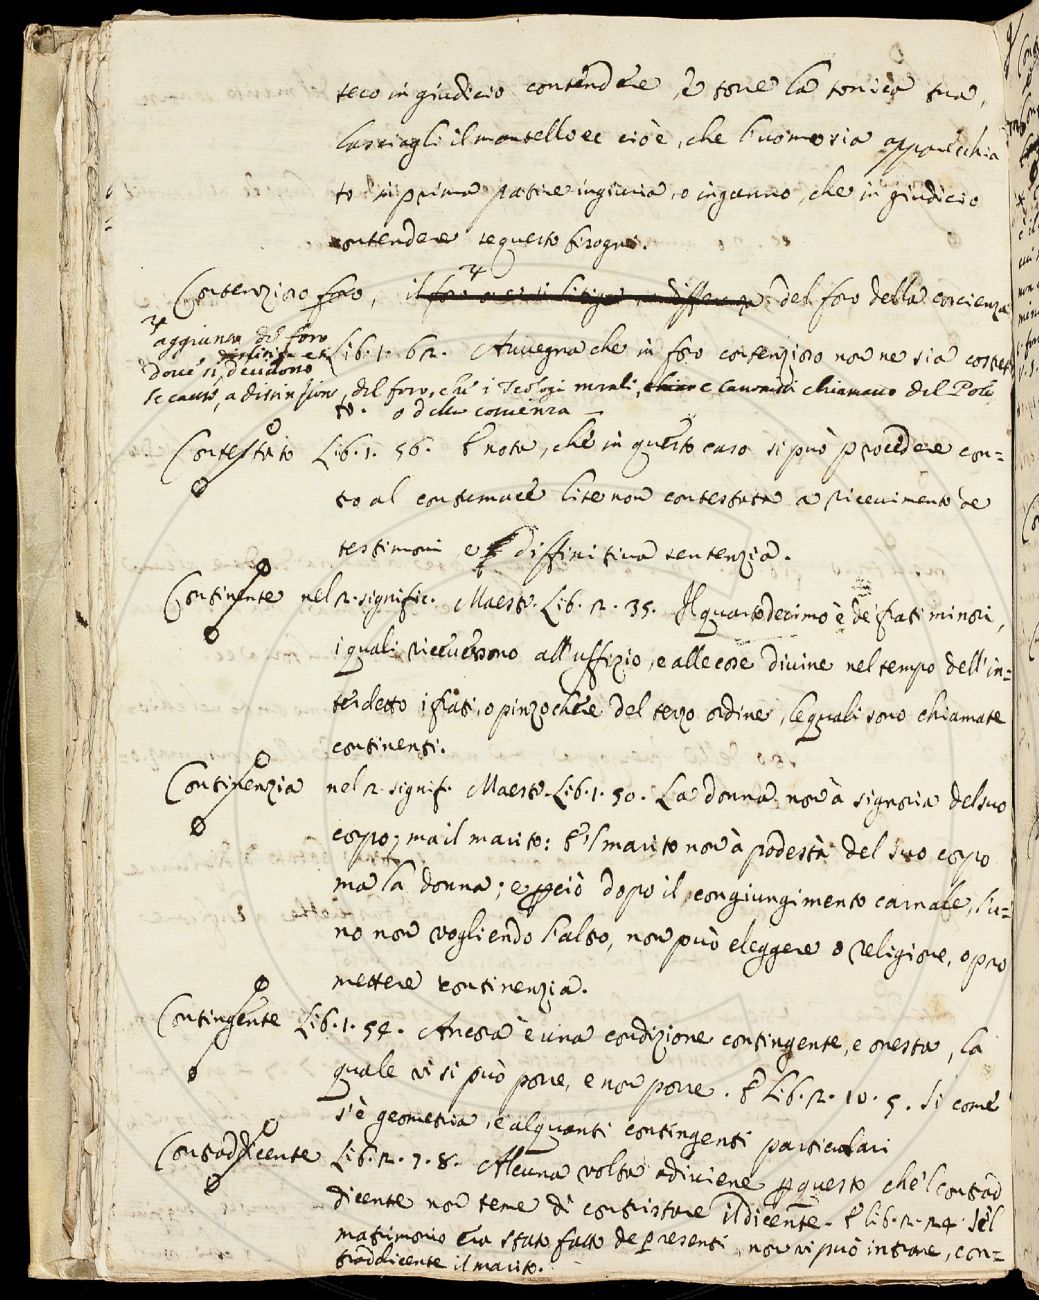 teco in giudicio contendere, e torre la tonica tua,
lasciagli il mantello ec cioè, che l'uomo sia apparecchia
to in prima patire ingiuria, o inganno, che in giudicio
contendere se questo bisogni.
Contenzioso foro, il del foro della coscienza
aggiunto di foro
dove si decidono
Lib. 1. 62. Avvegna che in foro contenzioso non ne sia costret
le cause, a distinzione del foro, che i Teologi morali, e Canonisti chiamano del Polo,
to. o della coscienza
Contestato Lib. 1. 56. E nota, che in questo caso si può procedere con=
tro al contumace lite non contestata a ricevimento de
testimoni e diffinitiva sentenzia.
Continente nel 2. signific. Maestr. Lib. 2. 35. Il quartodecimo è de' frati minori,
i quali ricevessono all'uffizio, e alle cose divine nel tempo dell'in=
terdetto i frati, o pinzochere del terzo ordine, le quali sono chiamate
continenti.
Continenzia nel 2. signif. Maestr. Lib. 1. 50. La donna non à signoria del suo
corpo; ma il marito: E 'l marito non à podestà del suo corpo
ma la donna; e perciò dopo il congiungimento carnale, l'u=
no non vogliendo l'altro, non può eleggere o religione, o pro
mettere continenzia.
Contingente Lib. 1. 54. Ancora è una condizione contingente, e onesta, la
quale vi si può porre, e non porre. E Lib. 2. 10. 5. Si come
s'è geometria, e alquanti contingenti particulari
Contraddicente Lib. 2. 7. 8. Alcuna volta adiviene per questo che 'l contrad
dicente non teme di contristare il dicente. E lib. 2. 24 se 'l
matrimonio era stato fatto de presenti, non vi può intrare, con=
traddicente il marito.